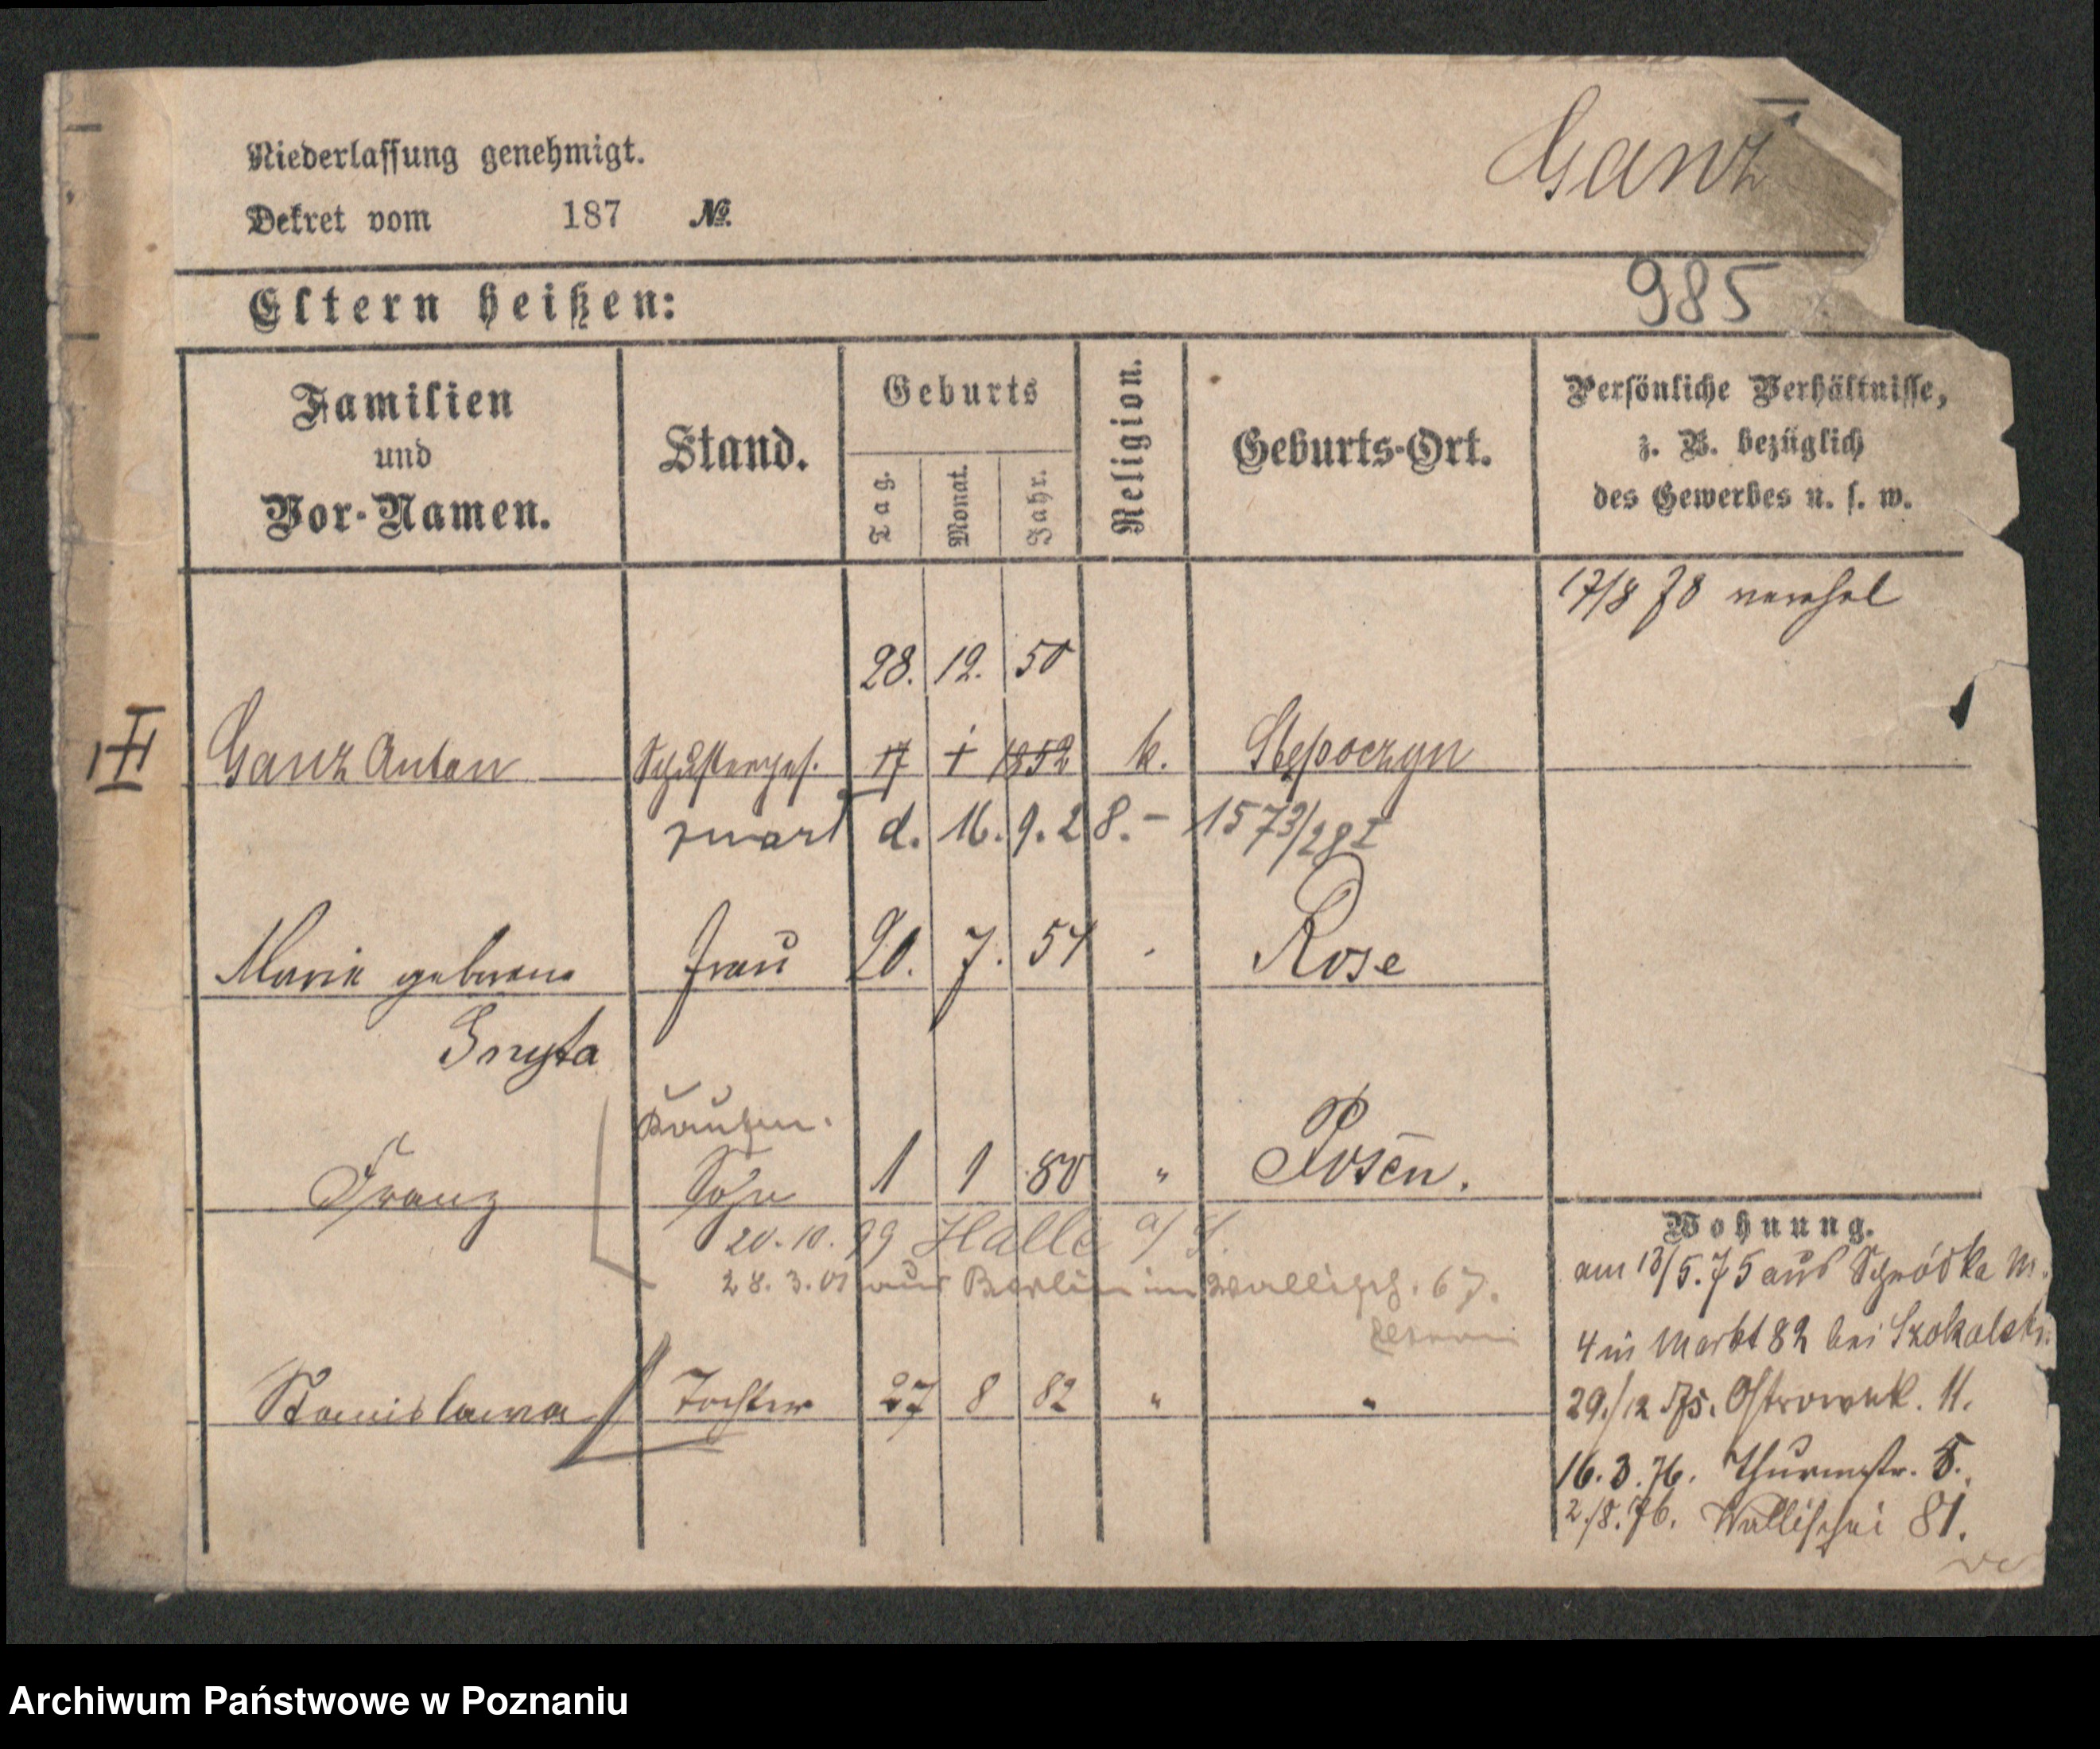 Ganz
Niederlassung genehmigt.
Dekret vom 187 №.
985
Eltern heißen:
Familien und Vor-Namen.
Stand.
Geburts
Tag. Monat. Jahr.
Religion.
Geburts-Ort.
Persönliche Verhältnisse,
z. B. bezüglich
des Gewerbes u. s. w.
17/8 78 verehel
28. 12. 50
III
Ganz Anton Schusterges. 17 1 1852 k.
zmarł d. 16. 9. 28. – 1573/28 I
Marie geborene Frau 20. 7. 54 Rose
Gnyta
Franz Sohn 1 1 80 " Posen.
20. 10. 99 Halle a/S.
28. 3. 01 aus Berlin in Wallisch. 67.
Stanislawa Tochter 27 8 82 " "
Wohnung.
am 13/5. 75 aus Schrodka
4 in Markt 82 bei
29./12 75. Ostrowek. 11.
16. 3. 76. Thurmstr. 5.
2./8. 76. Wallischei 81.
Archiwum Państwowe w Poznaniu